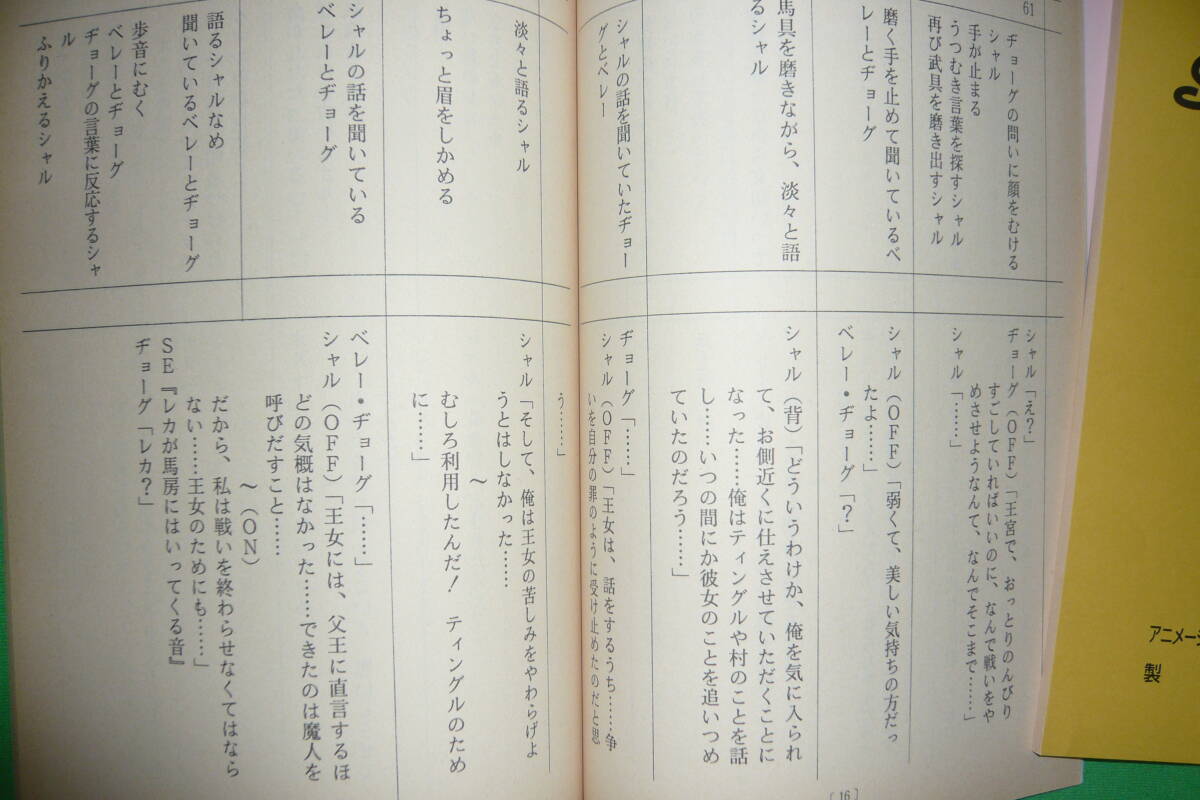 61
ヂョーグの問いに顔をむける
シャル
手が止まる
うつむき言葉を探すシャル
再び武具を磨き出すシャル
シャル「え?」
ヂョーグ(OFF)「王宮で、おっとりのんびり
すごしていればいいのに、なんで戦いをや
めさせようなんて、なんでそこまで……」
シャル「……」
磨く手を止めて聞いているベ
レーとヂョーグ
シャル(OFF)「弱くて、美しい気持ちの方だっ
たよ……」
ベレー・ヂョーグ「?」
馬具を磨きながら、淡々と語
るシャル
シャル(背)「どういうわけか、俺を気に入られ
て、お側近くに仕えさせていただくことに
なった……俺はティングルや村のことを話
し……いつの間にか彼女のことを追いつめ
ていたのだろう……」
シャルの話を聞いていたヂョー
グとベレー
ヂョーグ「……」
シャル(OFF)「王女は、話をするうち……争
いを自分の罪のように受け止めたのだと思
[16]
う……」
淡々と語るシャル
シャル「そして、俺は王女の苦しみをやわらげよ
うとはしなかった……
〜
むしろ利用したんだ! ティングルのため
に……」
ちょっと眉をしかめる
シャルの話を聞いている
ベレーとヂョーグ
ベレー・ヂョーグ「……」
シャル(OFF)「王女には、父王に直言するほ
どの気概はなかった……できたのは魔人を
呼びだすこと……
〜(ON)
だから、私は戦いを終わらせなくてはなら
ない……王女のためにも……」
SE『レカが馬房にはいってくる音』
ヂョーグ「レカ?」
語るシャルなめ
聞いているベレーとヂョーグ
歩音にむく
ベレーとヂョーグ
ヂョーグの言葉に反応するシャ
ル
ふりかえるシャル
アニメー
製